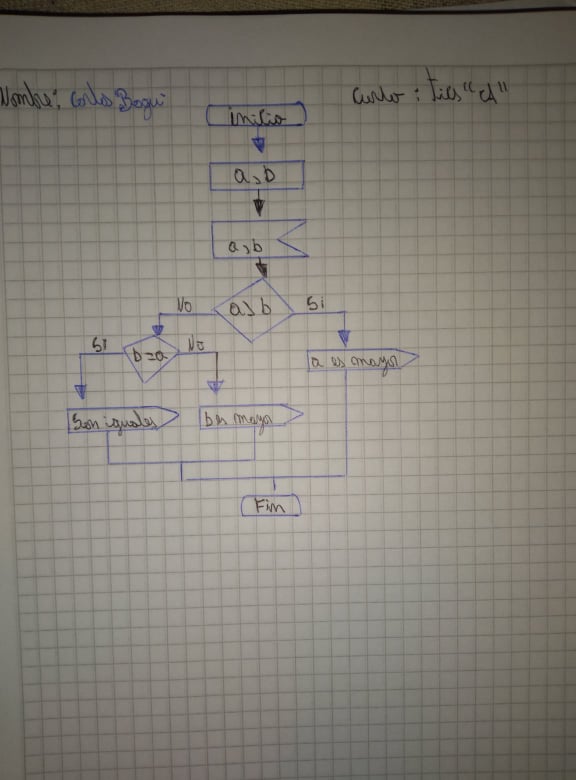 Nombre: Carlos Bagui
Curso : Tics "A"
inicio
a,b
a,b
a>b
No
Si
b=a
Si
No
a es mayor
Son iguales
b es mayor
Fin